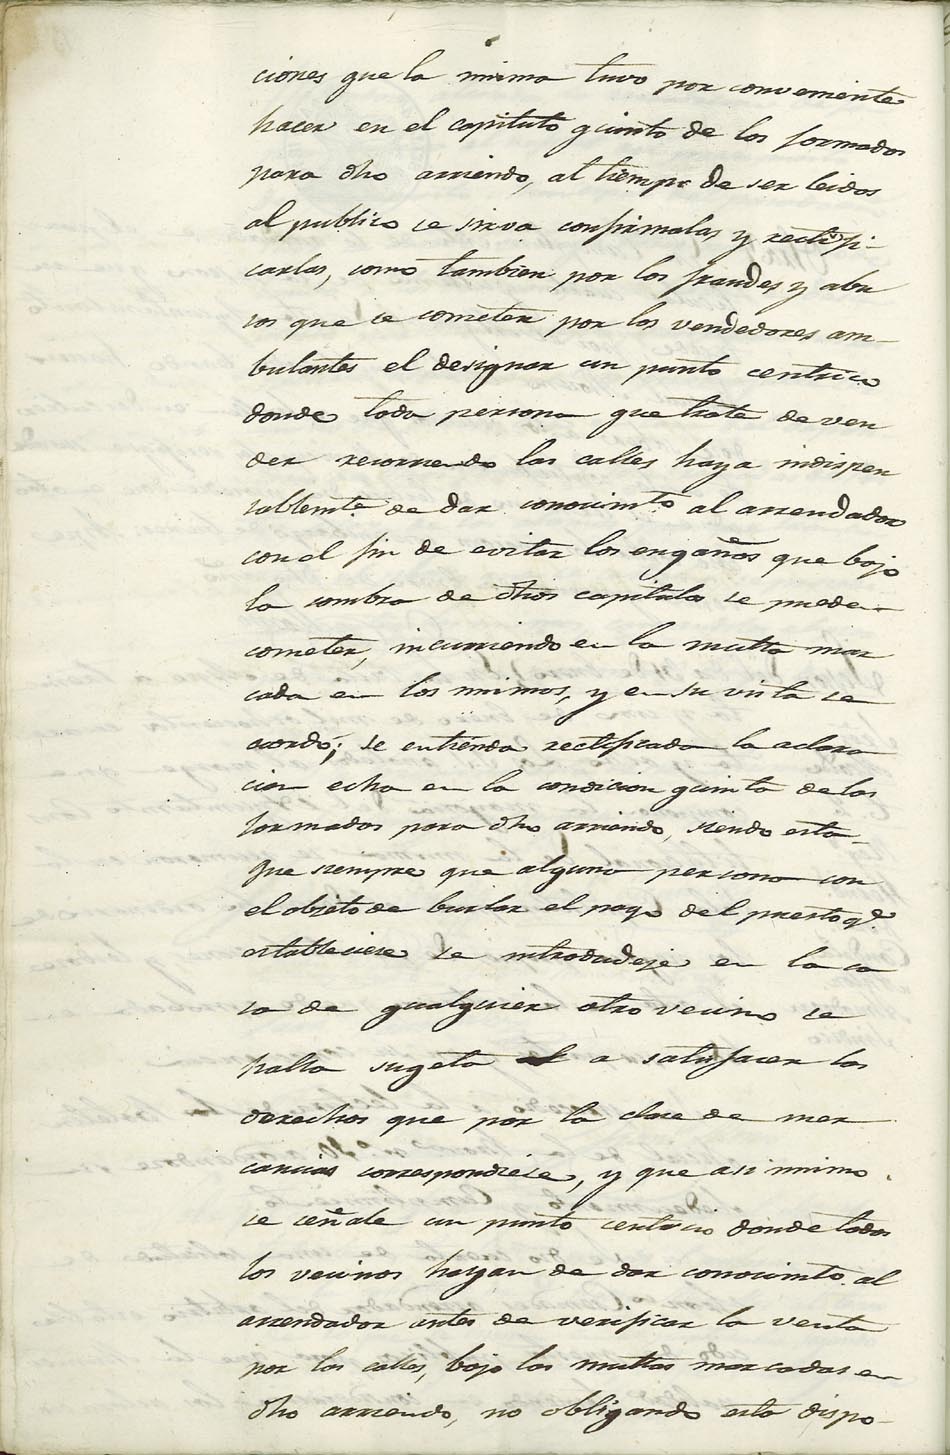 ciones que la misma tuvo por conveniente
hacer en el capitulo quinto de los formados
para dho arriendo, al tiempo de ser leidos
al publico se sirva confirmalas y rectifi-
carlas, como tambien por los fraudes y abu
sos que se cometen por los vendedores am-
bulantes el designar un punto centrico
donde toda persona que trate de ven
der recorriendo las calles haya indispen
sablemte. de dar conocimto. al arrendador
con el fin de evitar los engaños que bajo
la sombra de dhos capitulos se puede-
cometer, incurriendo en la multa mar
cada en los mimos, y en su vista se
acordó; se entienda rectificada la aclara
cion echa en la condicion quinta de las
formadas para dho arriendo, siendo esta-
que siempre que alguna persona con
el objeto de burlar el pago del puesto qe.
estableciere se introdudeje en la ca
sa de qualquier otro vecino se
halla sugeta a satisfacer los
derechos que por la clase de mer
cancias correspondiese, y que asi mimo
se señale un punto centrico donde todos
los vecinos hayan de dar conocimto. al
arrendador antes de verificar la venta
por las calles, bajo las multas marcadas en
dho arriendo, no obligando esta dispo-